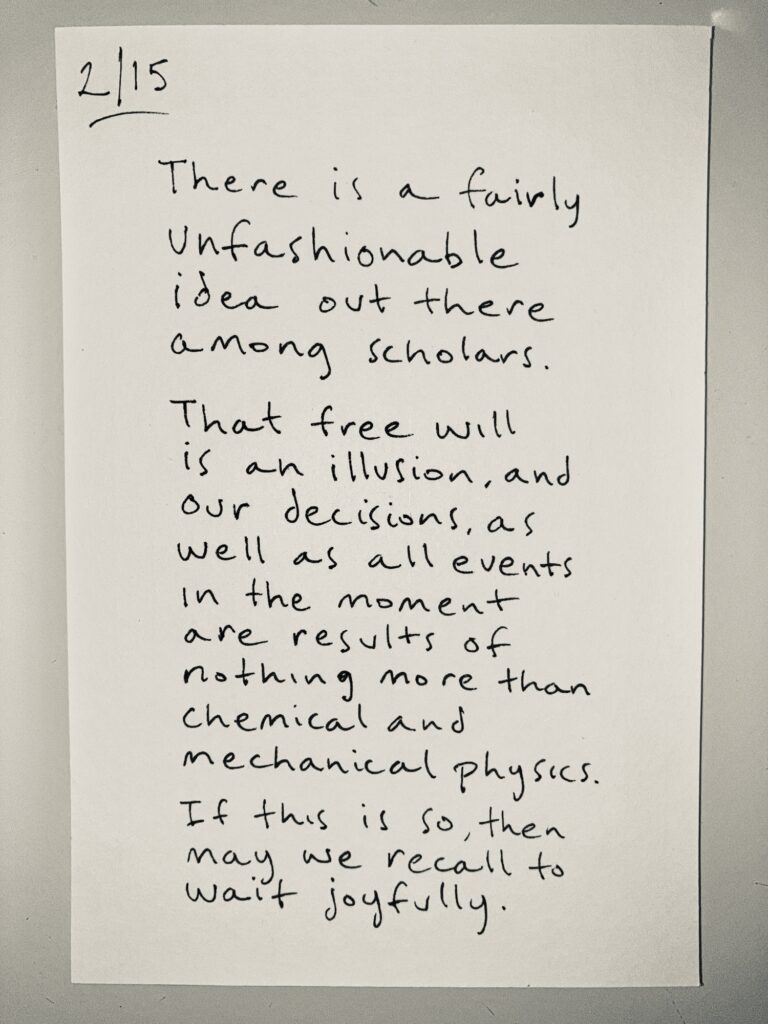 2/15
There is a fairly
unfashionable
idea out there
among scholars.
That free will
is an illusion, and
our decisions, as
well as all events
in the moment
are results of
nothing more than
chemical and
mechanical physics.
If this is so, then
may we recall to
wait joyfully.